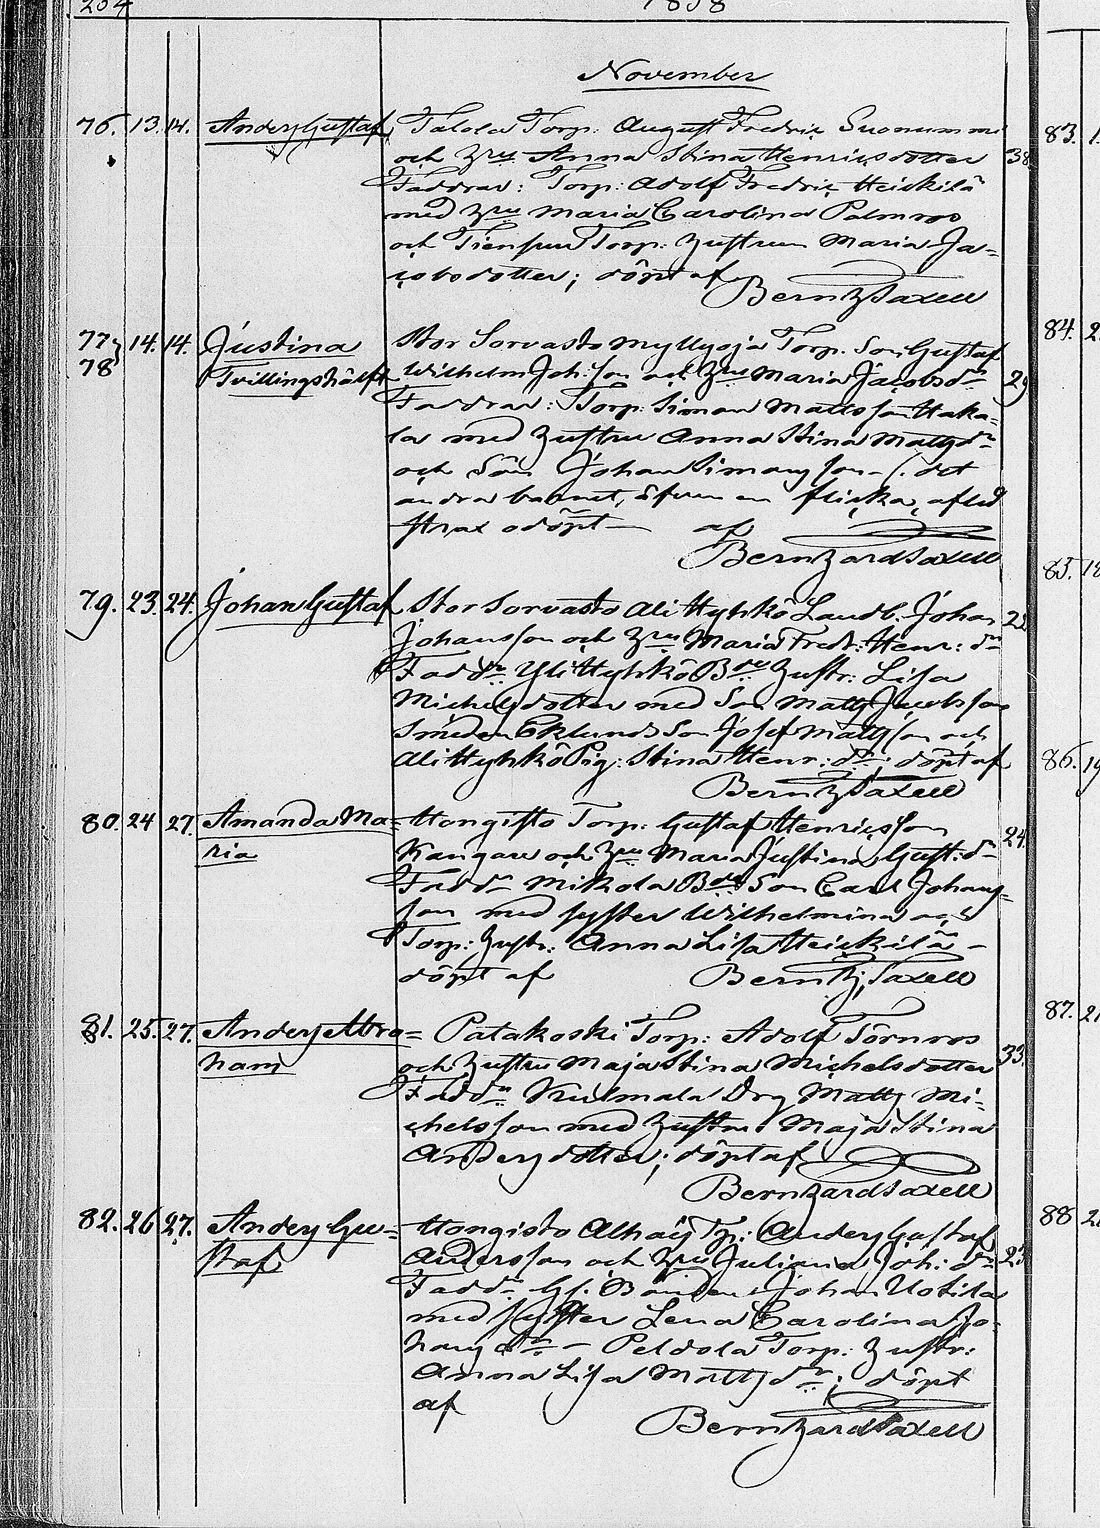 204 1858
November
76. 13. 14. Anders Gustaf, Talola Torp. August Fredric Suonummi
och Hru Anna Stina Henricsdotter 38
Faddrar: Torp: Adolf Fredric Heickilä
med Hru Maria Carolina Palmroo
och Torp. Hustrun Maria Ja-
cobsdotter; döpt af
Bernh Saxell
77 14. 14. Justina Stor Sorvasto Myllyoja Torp. Son Gustaf
78 Tvillingshälft Wilhelm Joh:son och Hru Maria Jacobsdr 29
Faddrar: Torp: Simon Mattsson Haka-
la med Hustru Anna Stina Mattsdr
och Son Johan Simonsson – (: det
andra barnet, äfven en flicka, afled
strax odöpt – af
Bernhard Saxell
79. 23. 24. Johan Gustaf Stor Sorvasto Ali Hyhkö Landb. Johan 22
Johansson och Hru Maria Fred: Henr: dr
Faddr Yli Hyhkö Bde Hustr: Lisa
Michelsdotter med Son Matts Jacobsson
Smeden Eklunds Son Josef Mattsson och
Ali Hyhkö Pig: Stina Henr: dr; döpt af
Bernh Saxell
80. 24 27. Amanda Ma- Hongisto Torp: Gustaf Henricsson 24
ria Kangare och Hru Maria Justina Gust: dr
Faddr Mikola Bde Son Carl Johans-
son med syster Wilhelmina och
Torp: Hustr: Anna Lisa Heickilä –
döpt af Bernh, Saxell
81. 25. 27. Anders Abra- Patakoski Torp: Adolf Törnroos
ham och Hustru Maja Stina Michelsdotter 33
Faddr Kulmala Drg Matts Mi-
chelsson med Hustru Maja Stina
Andersdotter; döpt af
Bernhard Saxell
82. 26 27. Anders Gu- Hongisto Alhais Tp: Anders Gustaf
staf Andersson och Hru Juliana Joh: dr 23
Faddr Gl. Bonden Johan Uotila
med syster Lena Carolina Jo-
hans dr – Peldola Torp: Hustr:
Anna Lisa Mattsdr; döpt
af Bernhard Saxell
83.
84. 2
85. 18
86. 19
87. 21
88 2